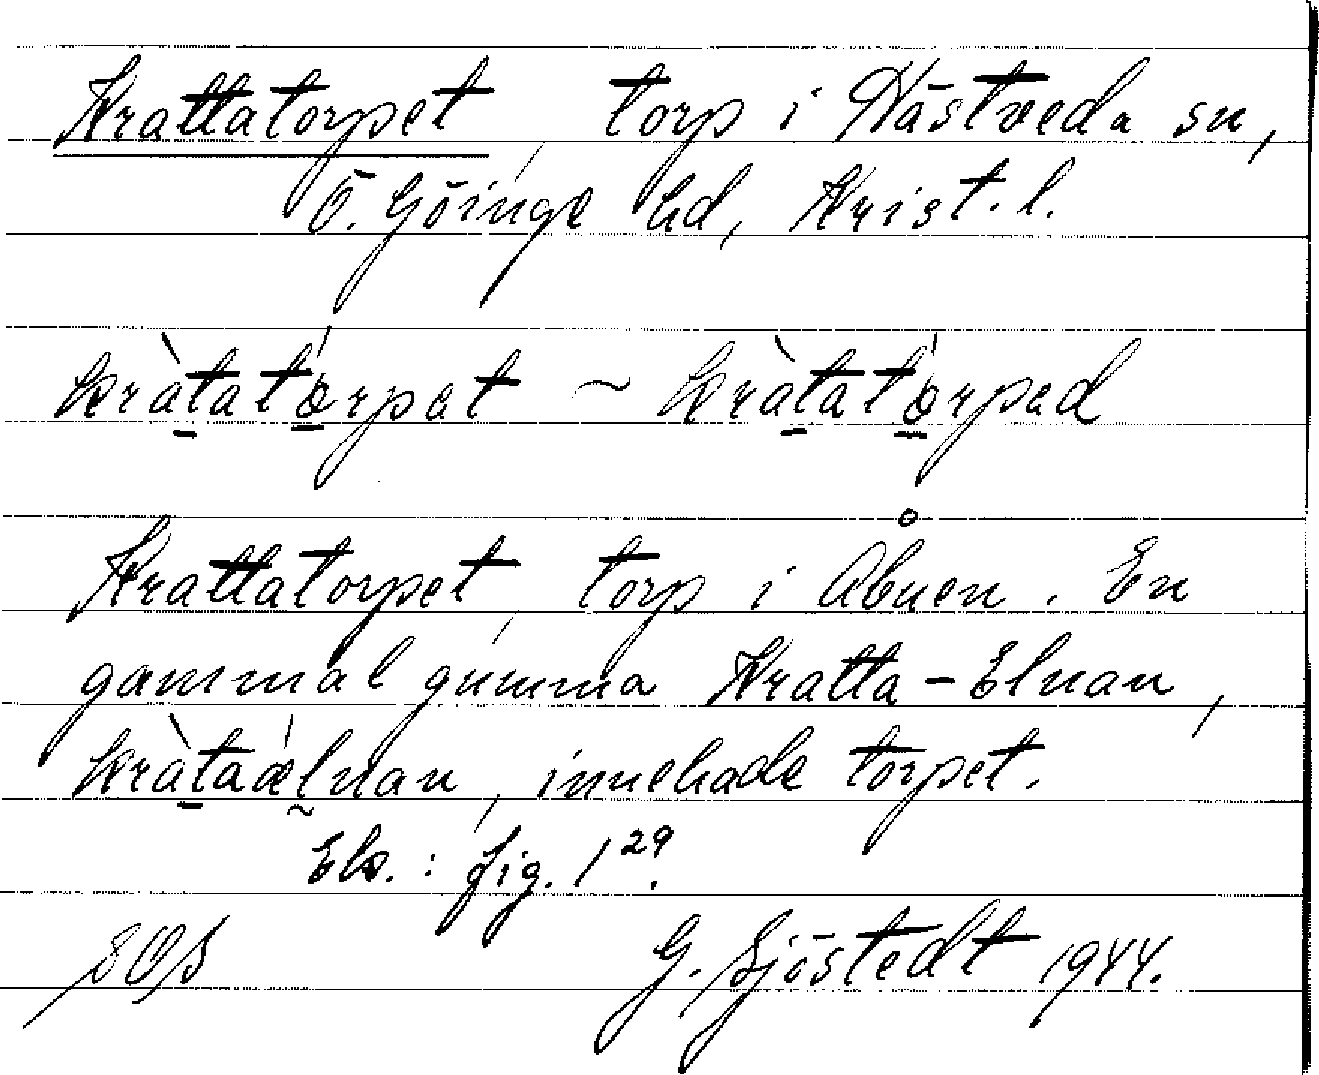 Krattatorpet, torp i Hästveda sn,
Ö. Göinge hd, Krist. l.
kràtatɵ́rpat ~ kràtatɵ́rpad
Krattatorpet, torp i Åbuen. En
gammal gumma Kratta-Elnan,
kràtaǽlnan, innehade torpet.
Ek.: fig. 1²⁹.
SOS G. Sjöstedt 1944.